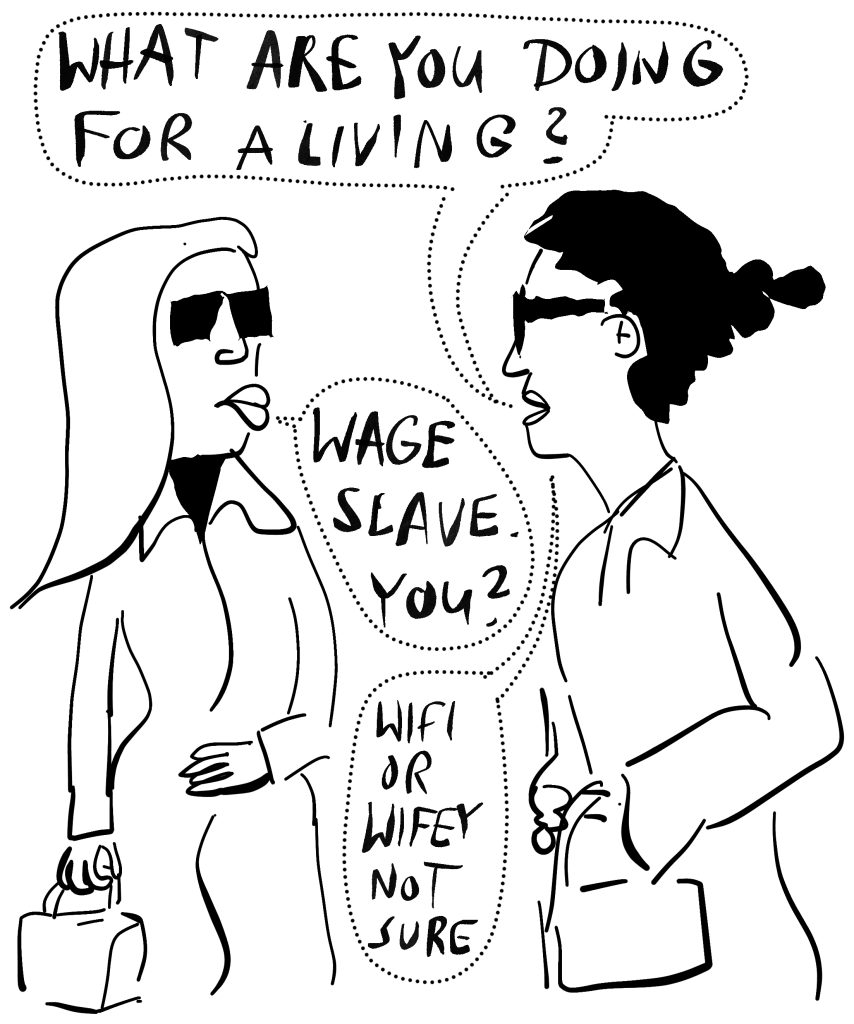 WHAT ARE YOU DOING
FOR A LIVING?
WAGE
SLAVE.
YOU?
WIFI
OR
WIFEY
NOT
SURE